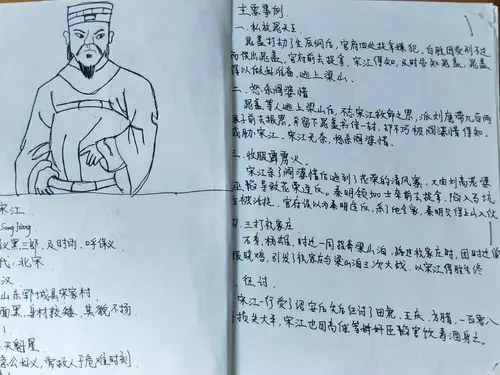 宋江
Song Jiang
黑三郎、及时雨、呼保义
北宋
汉
山东郓城县宋家村
面黑,身材较矮,其貌不扬
天魁星
急公好义,常救人于危难时刻
主要事例
一、私放晁天王
晁盖打劫了生辰纲后,官府四处捉拿嫌犯,白胜因受刑不过
而供出晁盖,官府前去捉拿,宋江得知,及时告知晁盖,晁盖
得以做好准备,逃上梁山。
二、怒杀阎婆惜
晁盖等人逃上梁山后,不忘宋江救命之恩,派刘唐带几百两
金子前去报恩,并留下晁盖书信一封,却不巧被阎婆惜得知,
威胁宋江,宋江无奈,杨杀阎婆惜。
三、收服霹雳火
宋江杀了阎婆惜后逃到了花荣的清风寨,又由刘高老婆
陷导致花荣造反。秦明领加士卒前去捉拿,陷入石坑
被活捉,官府误以为秦明造反,杀了他全家,秦明只得上山入伙
三打祝家庄
石秀、杨雄、时迁一同投奔梁山泊,路过祝家庄时,因时迁偷
报晓鸡,引发了祝家庄与梁山泊三次大战,以宋江得胜告终
征讨
宋江一行受了招安后先后征讨了田虎、王庆、方腊,一百零八
损失大半,宋江也因高俅等奸臣陷害饮毒酒身亡。